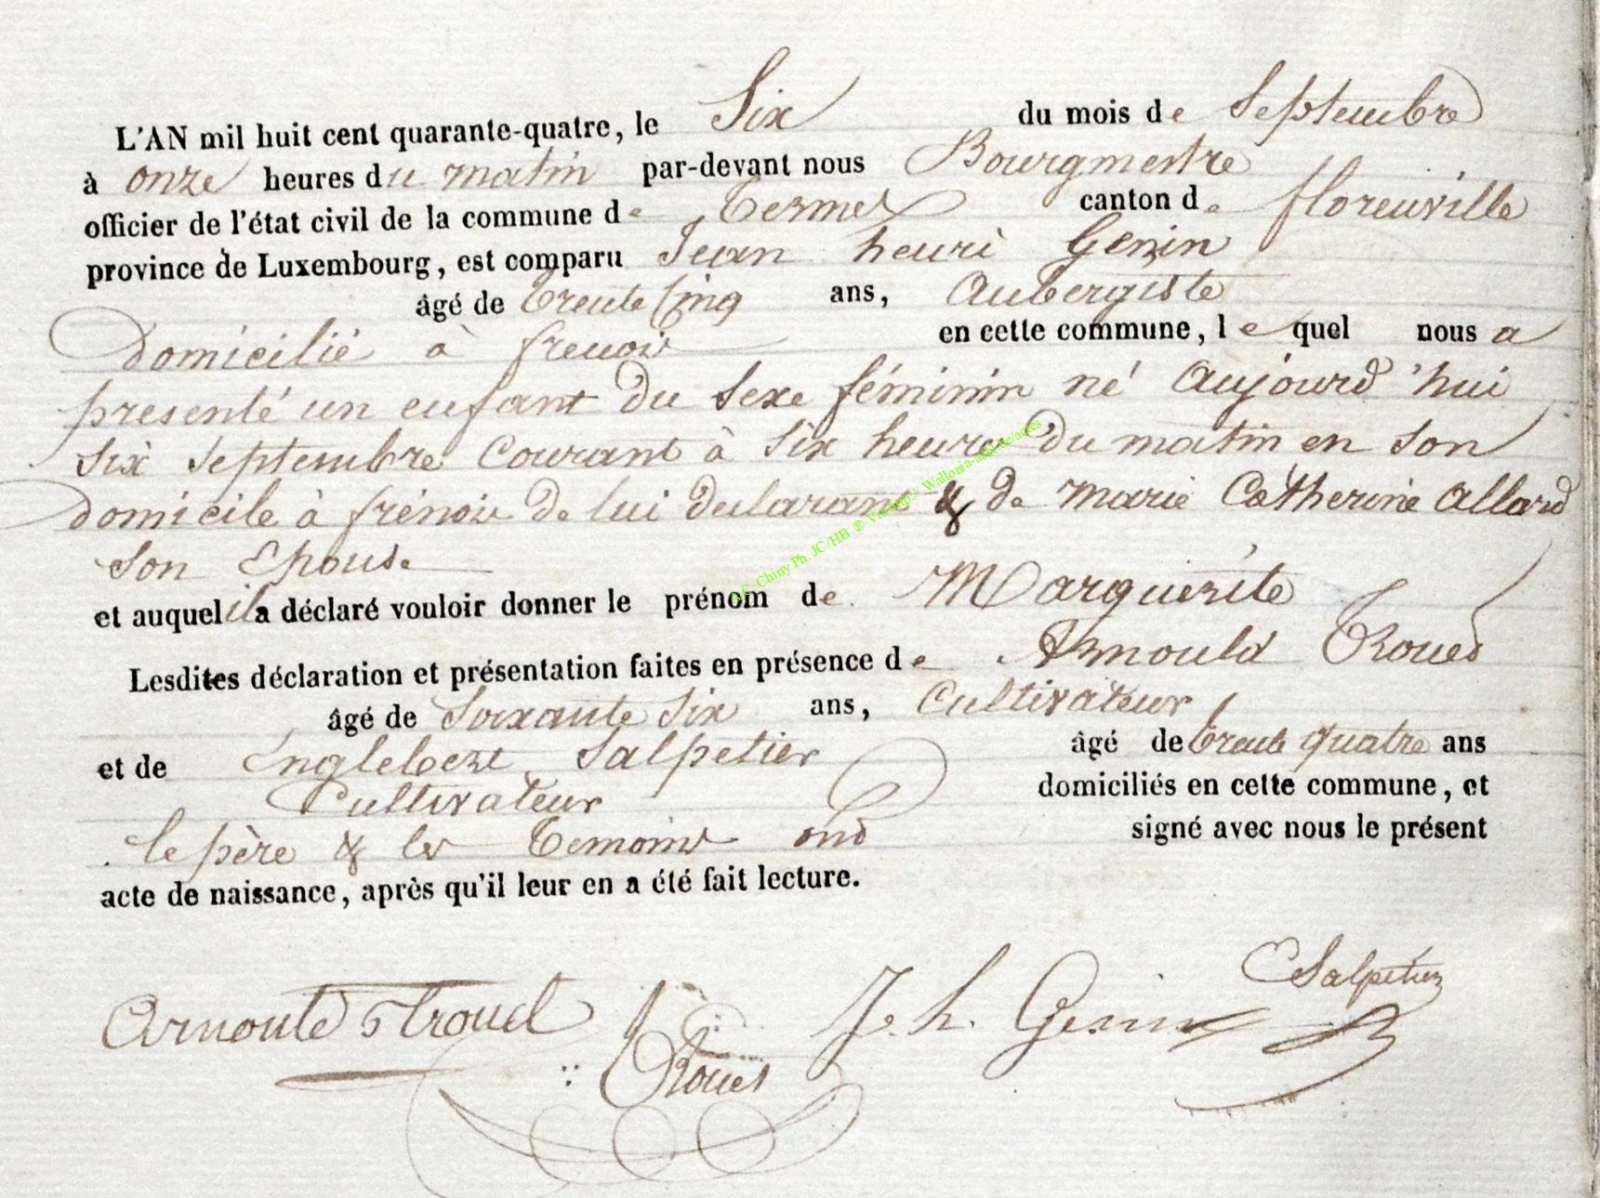 L'AN mil huit cent quarante-quatre, le Six du mois de Septembre
à onze heures du matin par-devant nous Bourgmestre
officier de l'état civil de la commune de Termes canton de florenville
province de Luxembourg, est comparu Jean henri Genin
âgé de trente Cinq ans, Aubergiste
Domicilié à frenois en cette commune, le quel nous a
presenté un enfant du sexe féminin né Aujourd'hui
six septembre Courant à six heures du matin en son
domicile à frénois de lui declarant & de marie Catherine Allard
son Epouse
et auquel il a déclaré vouloir donner le prénom de Marguerite
Lesdites déclaration et présentation faites en présence de Arnould Roues
âgé de Soixante Six ans, Cultivateur
et de Englebert Salpetier âgé de trente quatre ans
Cultivateur domiciliés en cette commune, et
le père & les temoins ond signé avec nous le présent
acte de naissance, après qu'il leur en a été fait lecture.
Salpetier
J. h. Genin
Roues